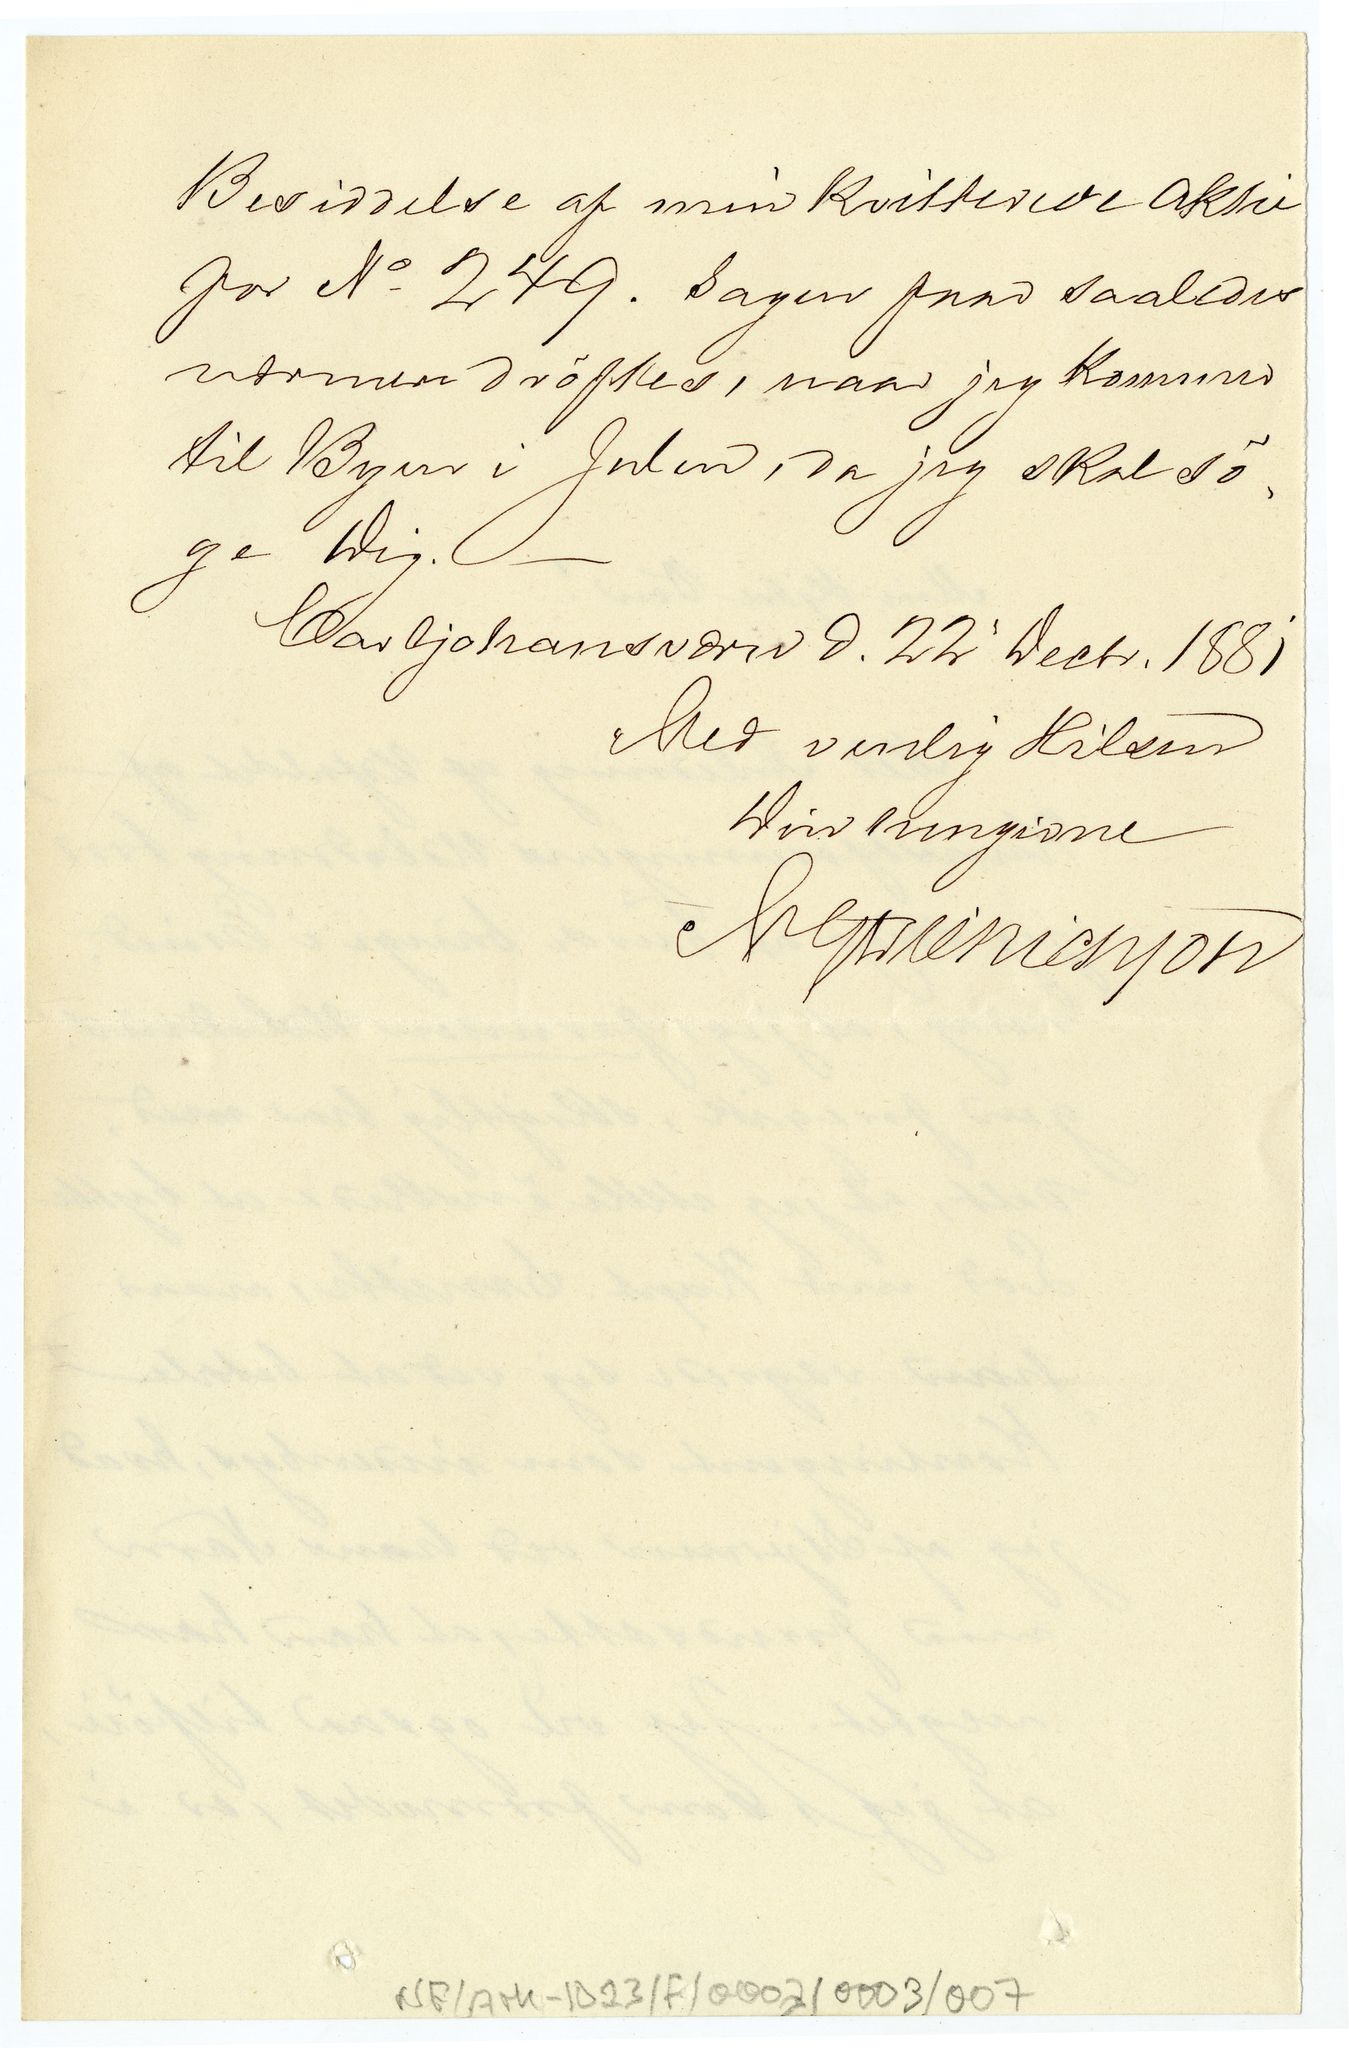 Besiddelse af min Kvitterede Aktie
for No 249. Sagen faar saaledes
nærmere dröftes, naar jeg kommer
til Byen i Julen, da jeg skal sö-
ge Dig. —
Carljohansværn d. 22 Decbr. 1881
Med venlig Hilsen
Din hengivne
NE/ARK-1023/F/0002/0003/007